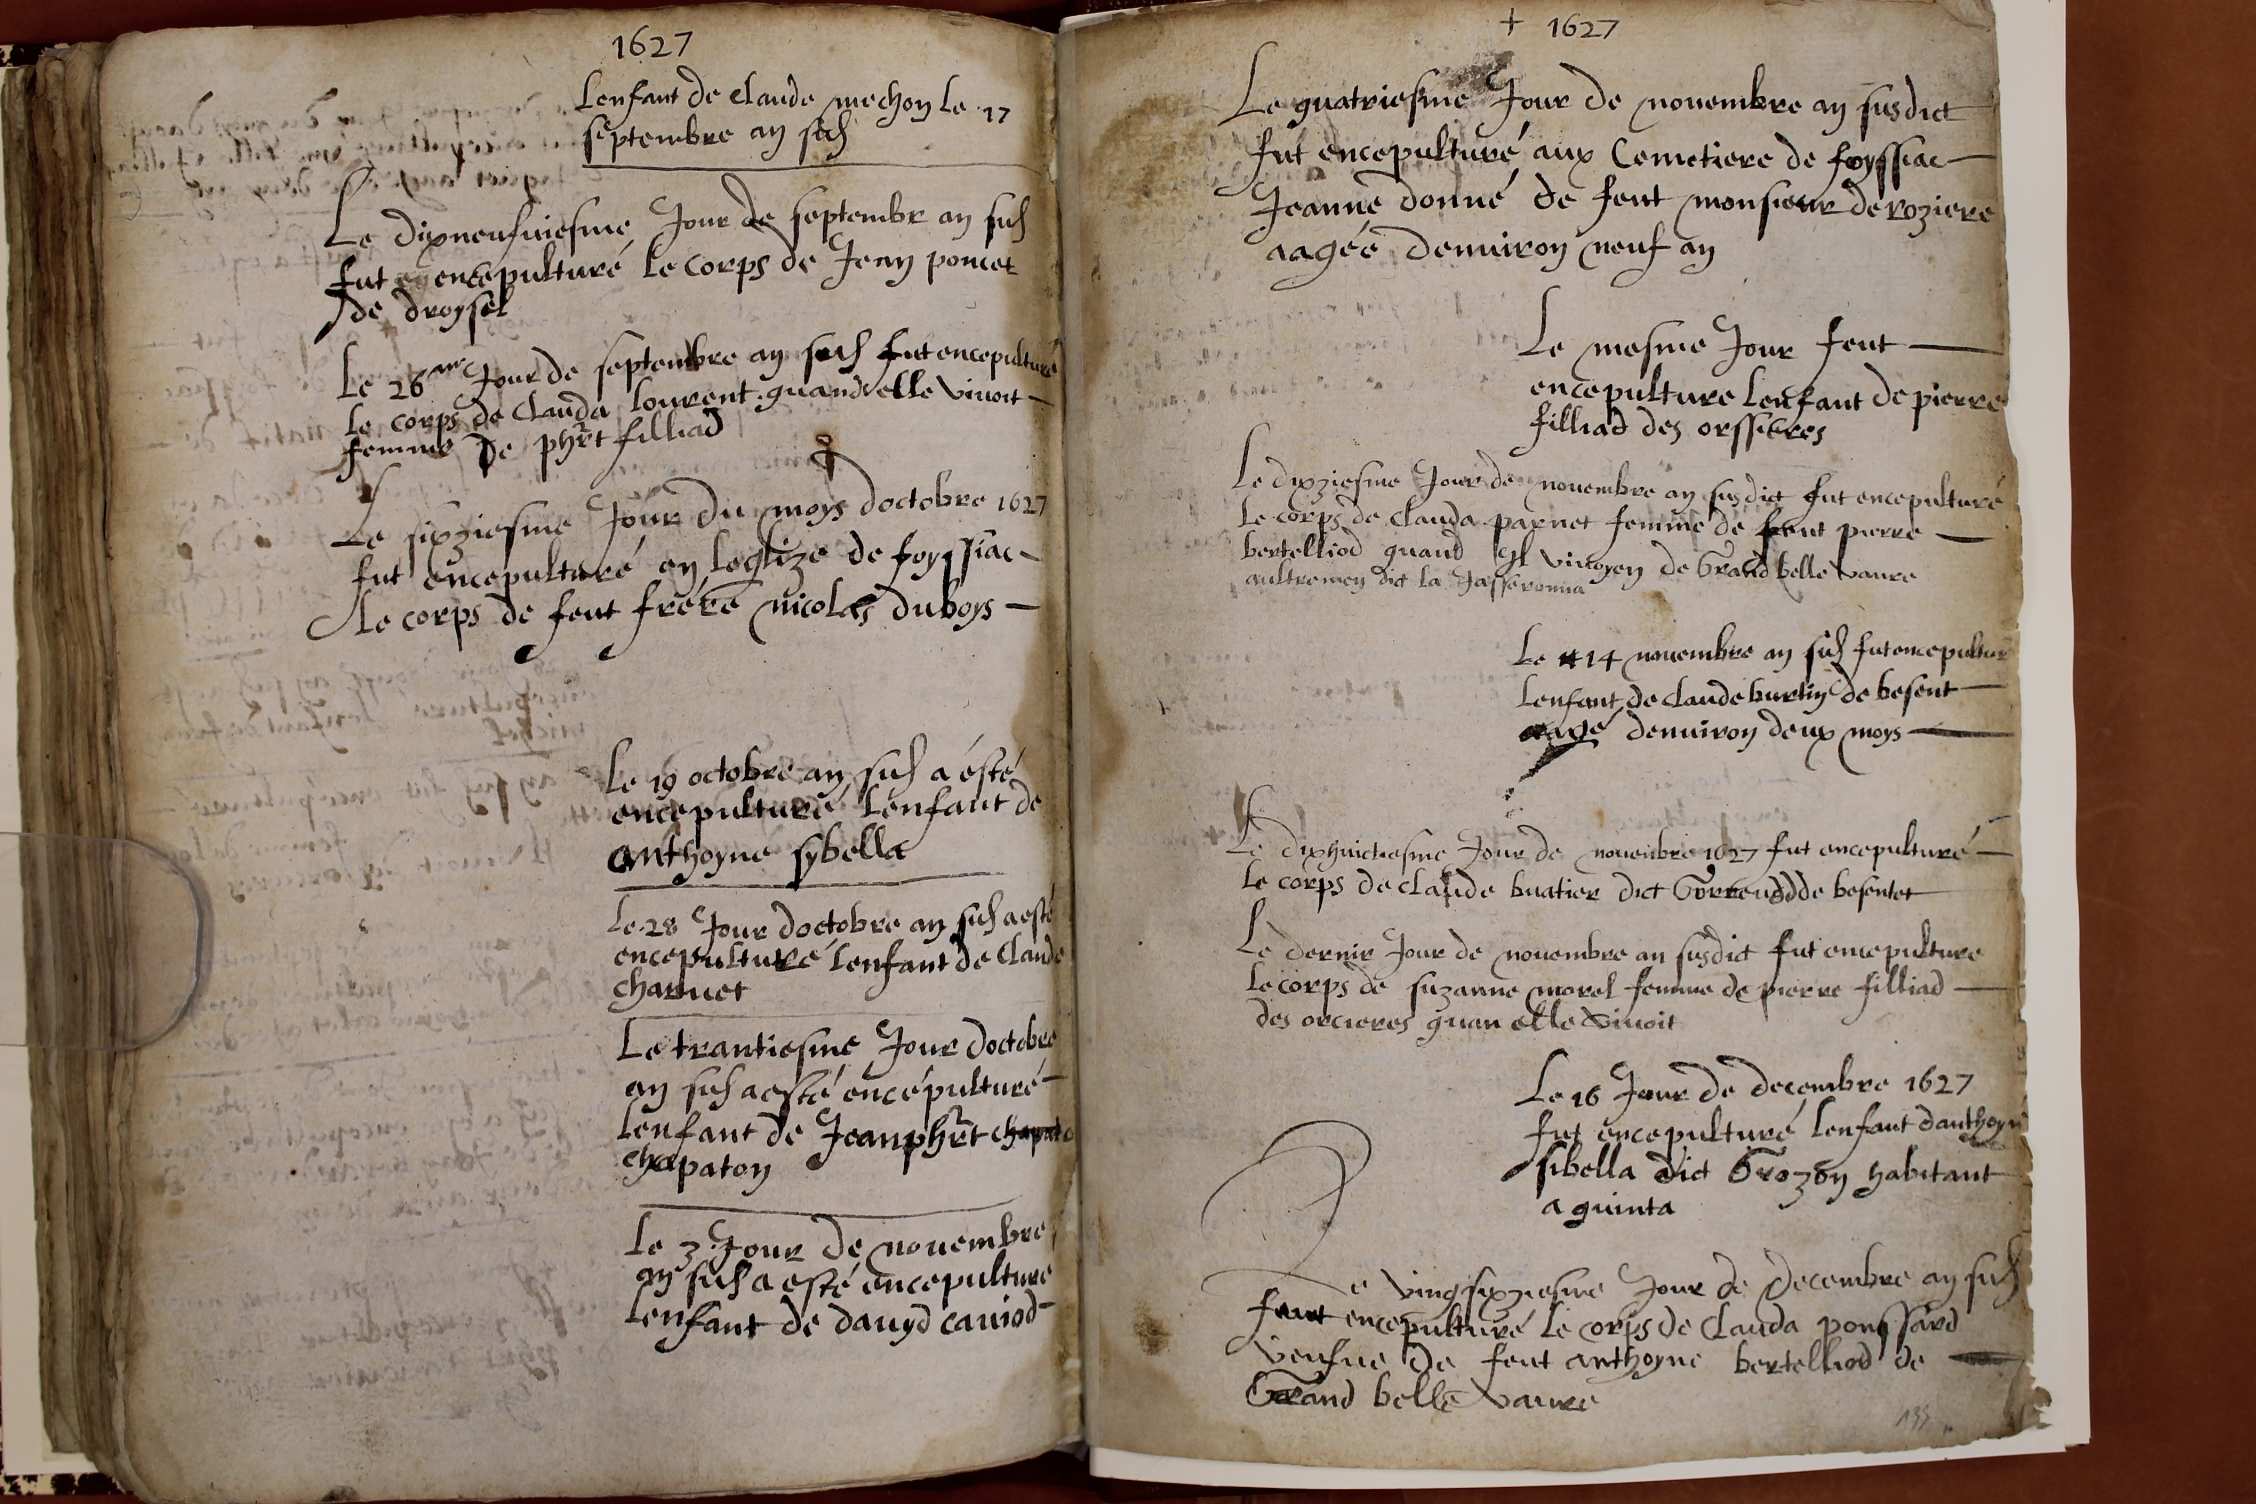 1627
Lenfant de claude mechon le 17
septembre an sud
Le dixneufuiesme Jour de septembr an sud
fut encepulturé le corps de Jean poncet
de droysel
Le 26me Jour de septembre an sud fut encepulturé
le corps de Clauda lourent quand elle viuoit
femme de phrt filliad
Le sixziesme Jour du moys doctobre 1627
fut encepulturé en leglize de foyssiac
le corps de feut frere nicolas duboys
le 19 octobre an sud a ésté
encepulturé lenfant de
anthoyne sybella
le 28 Jour doctobre an sud a esté
encepulturé lenfant de Claude
charuet
Le trantiesme Jour doctobre
an sud a esté encépulturé
lenfant de Jeanphrt
chapaton
Le 3 Jour de nouembre
an sud a esté encepulture
lenfant de dauyd cauiod
+ 1627
Le quatriesme Jour de nouembre an susdict
fut encepulturé aux Cemetiere de foyssiac
Jeanne donné de feut monsieur de roziere
aagée denuiron neuf an
Le mesme Jour feut
encepulture lenfant de pierre
filliad des orssieres
Le dixziesme Jour de nouembre an susdict fut encepulturé
le corps de clauda parnet femme de feut pierre
bertelliod quand Il viuoyen de Grand belle vaure
aultremen dict la Jasseronna
Le 14 nouembre an sud fut encepultur
lenfant de claude burtin de besent
aagé denuiron deux moys
Le dixhuictiesme Jour de nouenbre 1627 fut encepulturé
le corps de claude buatier dict de besentet
Le dernir Jour de nouembre an susdict fut encepulture
le corps de suzanne morel femme de pierre filliad
des orcieres quan elle viuoit
Le 16 Jour de decembre 1627
fut encepulturé lenfant danthoyn
sibella dict Grozon habitant
a guinta
Le vingsixziesme Jour de decembre an sud
feut encepulturé le corps de Clauda ponssard
veufue de feut anthoyne bertelliod de
Grand belle vaure